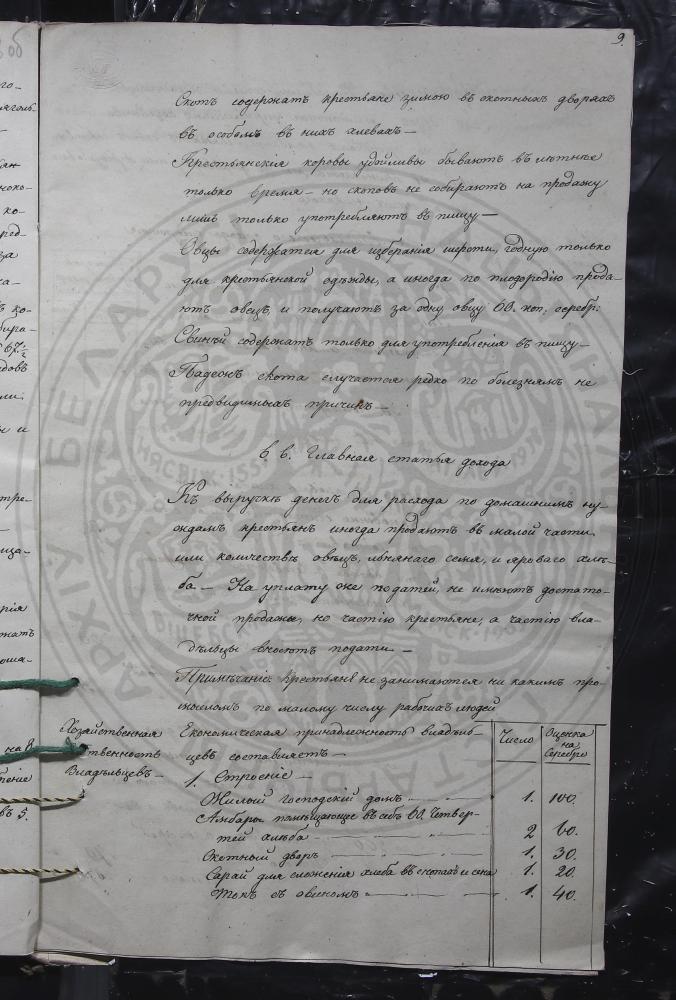 9.
Скотъ содержатъ крестьяне зимою въ скотныхъ дворахъ
въ особомъ въ нихъ хлевахъ —
Крестьянскія коровы удойливы бываютъ въ лѣтнѣе
только время — но скоповъ не собираютъ на продажу
лишь только употребляютъ въ пищу —
Овцы содержатся для избранія шерсти, годную только
для крестьянской одежды, а иногда по плодородію прода-
ютъ овецъ, и получаютъ за одну овцу 60. коп. серебр:
Свиньй содержатъ только для употребленія въ пищу —
Падежъ скота случается редко по болезнямъ не
предвидимыхъ причинъ —
в в. Главная статья дохода
Къ выручкѣ денегъ для расхода по домашнимъ ну-
ждамъ крестьянъ иногда продаютъ въ малой части
или количествѣ овецъ, льнянаго семя, и яроваго хлѣ-
ба — На уплату же податей, не имѣютъ достато-
чной продажи, но частію крестьяне, а частію вла-
дѣльцы вносютъ подати —
Примѣчаніе крестьянѣ не занимаются ни какимъ про-
мысломъ по малому числу рабочихъ людей
Хозяйственная
ственность
Владѣльцевъ —
Економическая принадлежность владѣль-
цевъ составляетъ —
Число
Оценка
на
Серебро
1. Строеніе —
Жилый господскій домъ — 1. 100.
Амбары помѣщающіе въ себѣ 60. Четвер-
тей хлѣба — 2 60.
Скотный дворъ — 1. 30.
Сарай для сложенія хлеба въ снопахъ и сена 1. 20.
Токъ съ овиномъ — 1. 40.